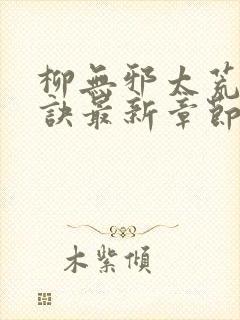 柳無邪太荒
訣最新章節
木紫傾